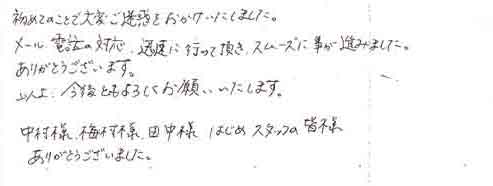 初めてのことで大変ご迷惑をおかけいたしました。
メール、電話の対応、迅速に行って頂き、スムーズに事が進みました。
ありがとうございます。
以上、今後ともよろしくお願いいたします。
中村様、梅村様、田中様はじめスタッフの皆様
ありがとうございました。